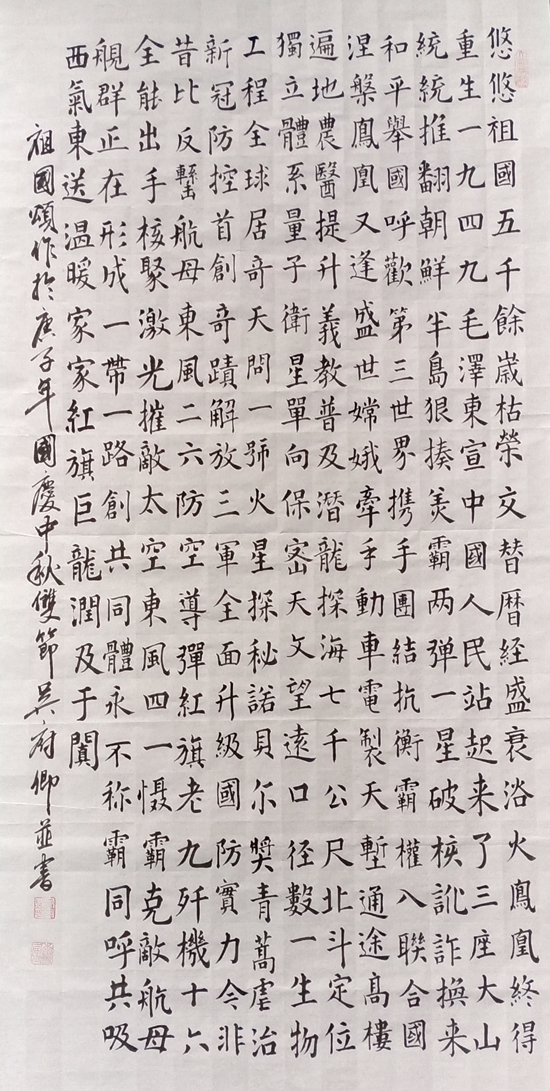 悠悠祖國五千餘嵗枯榮交替曆经盛衰浴火鳳凰終得
重生一九四九毛澤東宣中國人民站起来了三座大山
統統推翻朝鮮半島狠揍美霸两弹一星破核訛詐换来
和平舉國呼歡第三世界携手團结抗衡霸權八联合國
涅槃鳳凰又逢盛世嫦娥牽手動車電製天塹通途高樓
遍地農醫提升義教普及潛龍探海七千公尺北斗定位
獨立體系量子衛星單向保密天文望遠口径數一生物
工程全球居奇天問一號火星探秘諾貝尔獎青蒿虐治
新冠防控首創奇蹟解放三軍全面升級國防實力今非
昔比反擊航母東風二六防空導彈紅旗老九歼機十六
全能出手核聚激光摧敵太空東風四一慑霸克敵航母
舰群正在形成一带一路創共同體永不称霸同呼共吸
西氣東送温暖家家紅旗巨龍潤及于闐
祖國頌作於庚子年國慶中秋雙節吴府卿並書